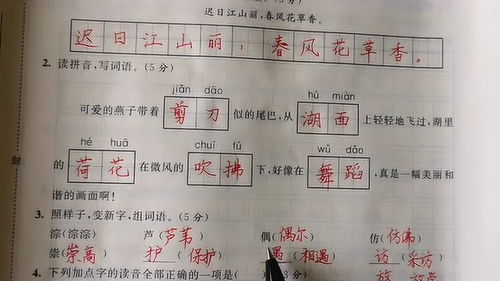 (5分)
迟日江山丽,春风花草香。
迟日江山丽,春风花草香。
2. 读拼音,写词语。(5分)
jiǎn dāo hú miàn
可爱的燕子带着 剪刀 似的尾巴,从 湖面 上轻轻地飞过,湖里
hé huā chuī fú wǔ dǎo
的 荷花 在微风的 吹拂 下,好像在 舞蹈 ,真是一幅美丽和
谐的画面啊!
封
3. 照样子,变新字,组词语。(5分)
淙(淙淙) 芦(芦苇) 偶(偶尔) 仿(仿佛)
崇(崇高) 护(保护) 遇(相遇) 访(采访)
4. 下列加点字的读音全部正确的一项是( )(3分) 放(放学)